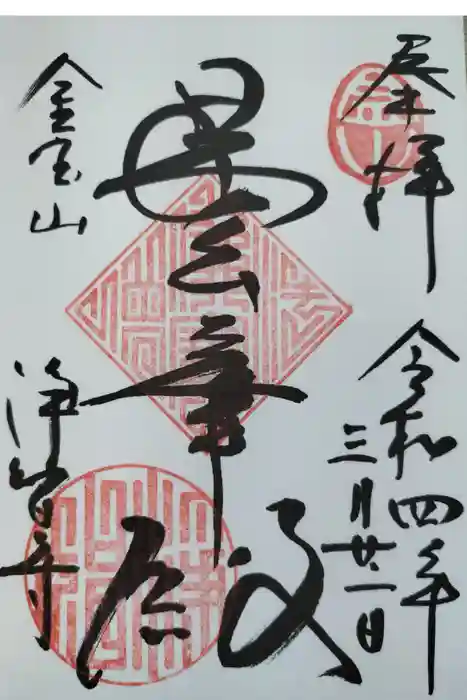 奉拝
令和四年
三月廿一日
曇華殿
金宝山
浄智寺